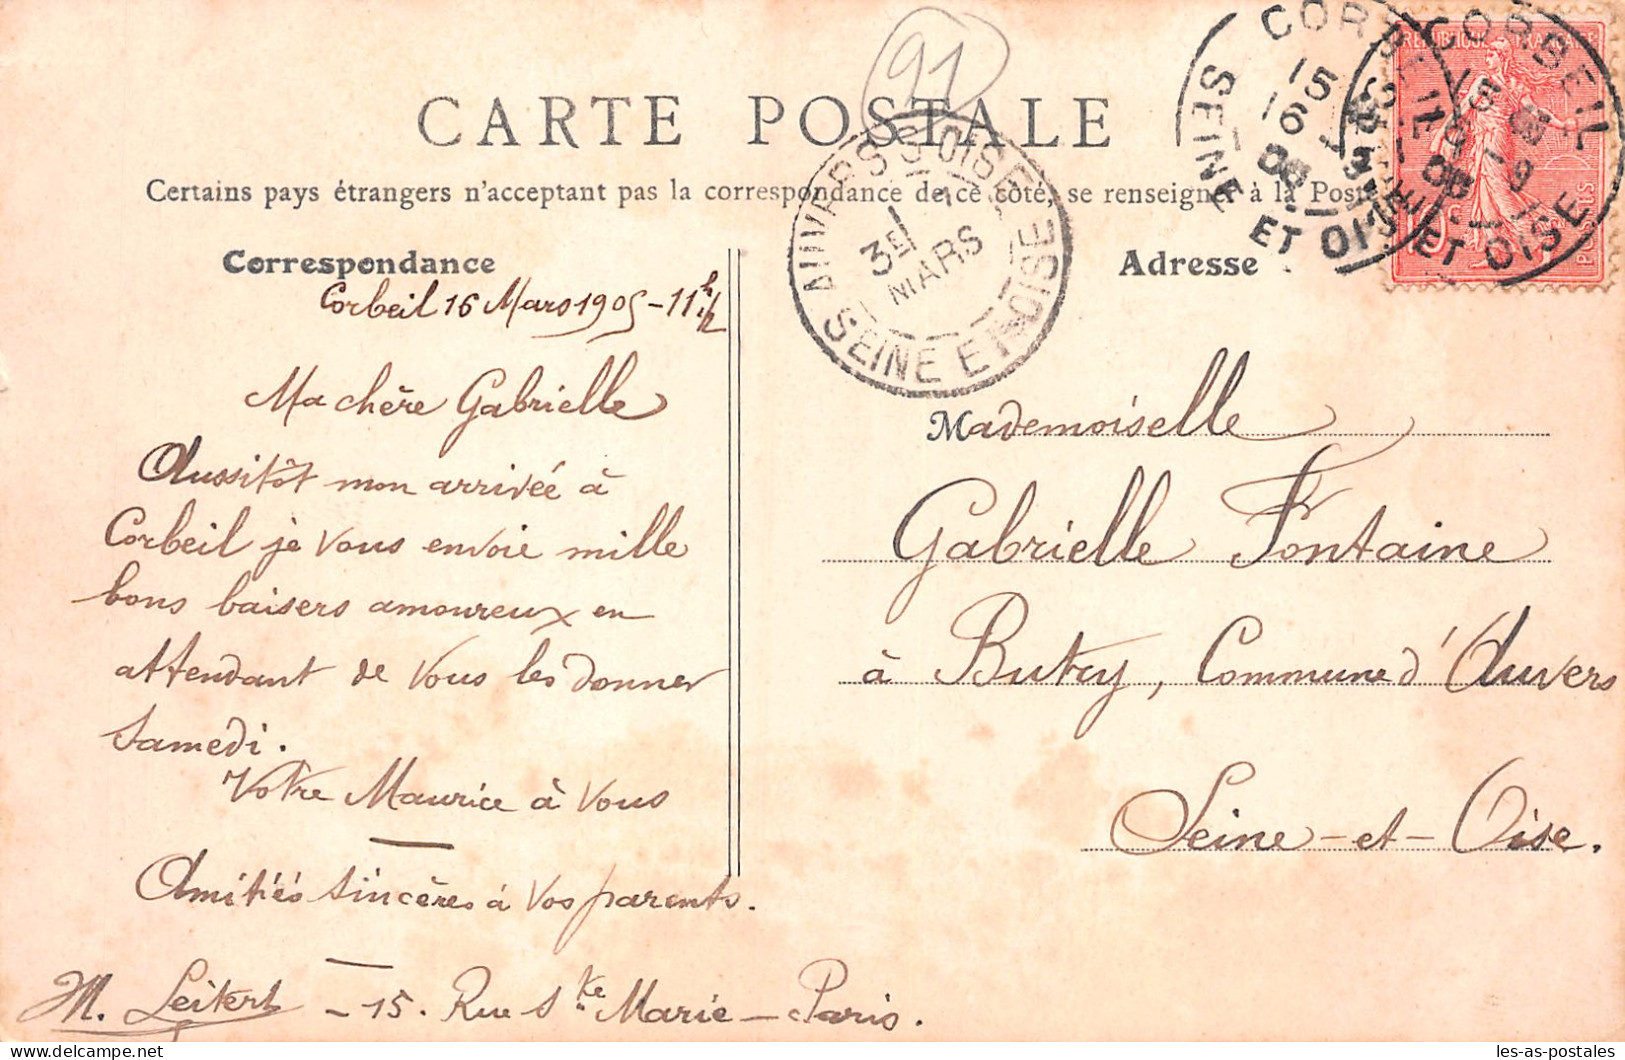 91
CARTE POSTALE
Certains pays étrangers n'acceptant pas la correspondance de ce côté, se renseigner à la Poste
Correspondance
Corbeil 16 Mars 1905 - 11h 1/2
Ma chère Gabrielle
Aussitôt mon arrivée à
Corbeil je vous envoie mille
bons baisers amoureux en
attendant de vous les donner
samedi.
Votre Maurice à vous
Amitiés sincères à vos parents.
M. Leitert - 15. Rue Ste Marie - Paris.
AUVERS S OISE
3E
MARS
SEINE ET OISE
Adresse
Mademoiselle
Gabrielle Fontaine
à Butry, Commune d'Auvers
Seine-et-Oise.
CORBEIL
15
16
SEINE ET OISE
CORBEIL
SEINE ET OISE
REPUBLIQUE FRANÇAISE
10c
POSTES
les-as-postales
les-as-postales.com